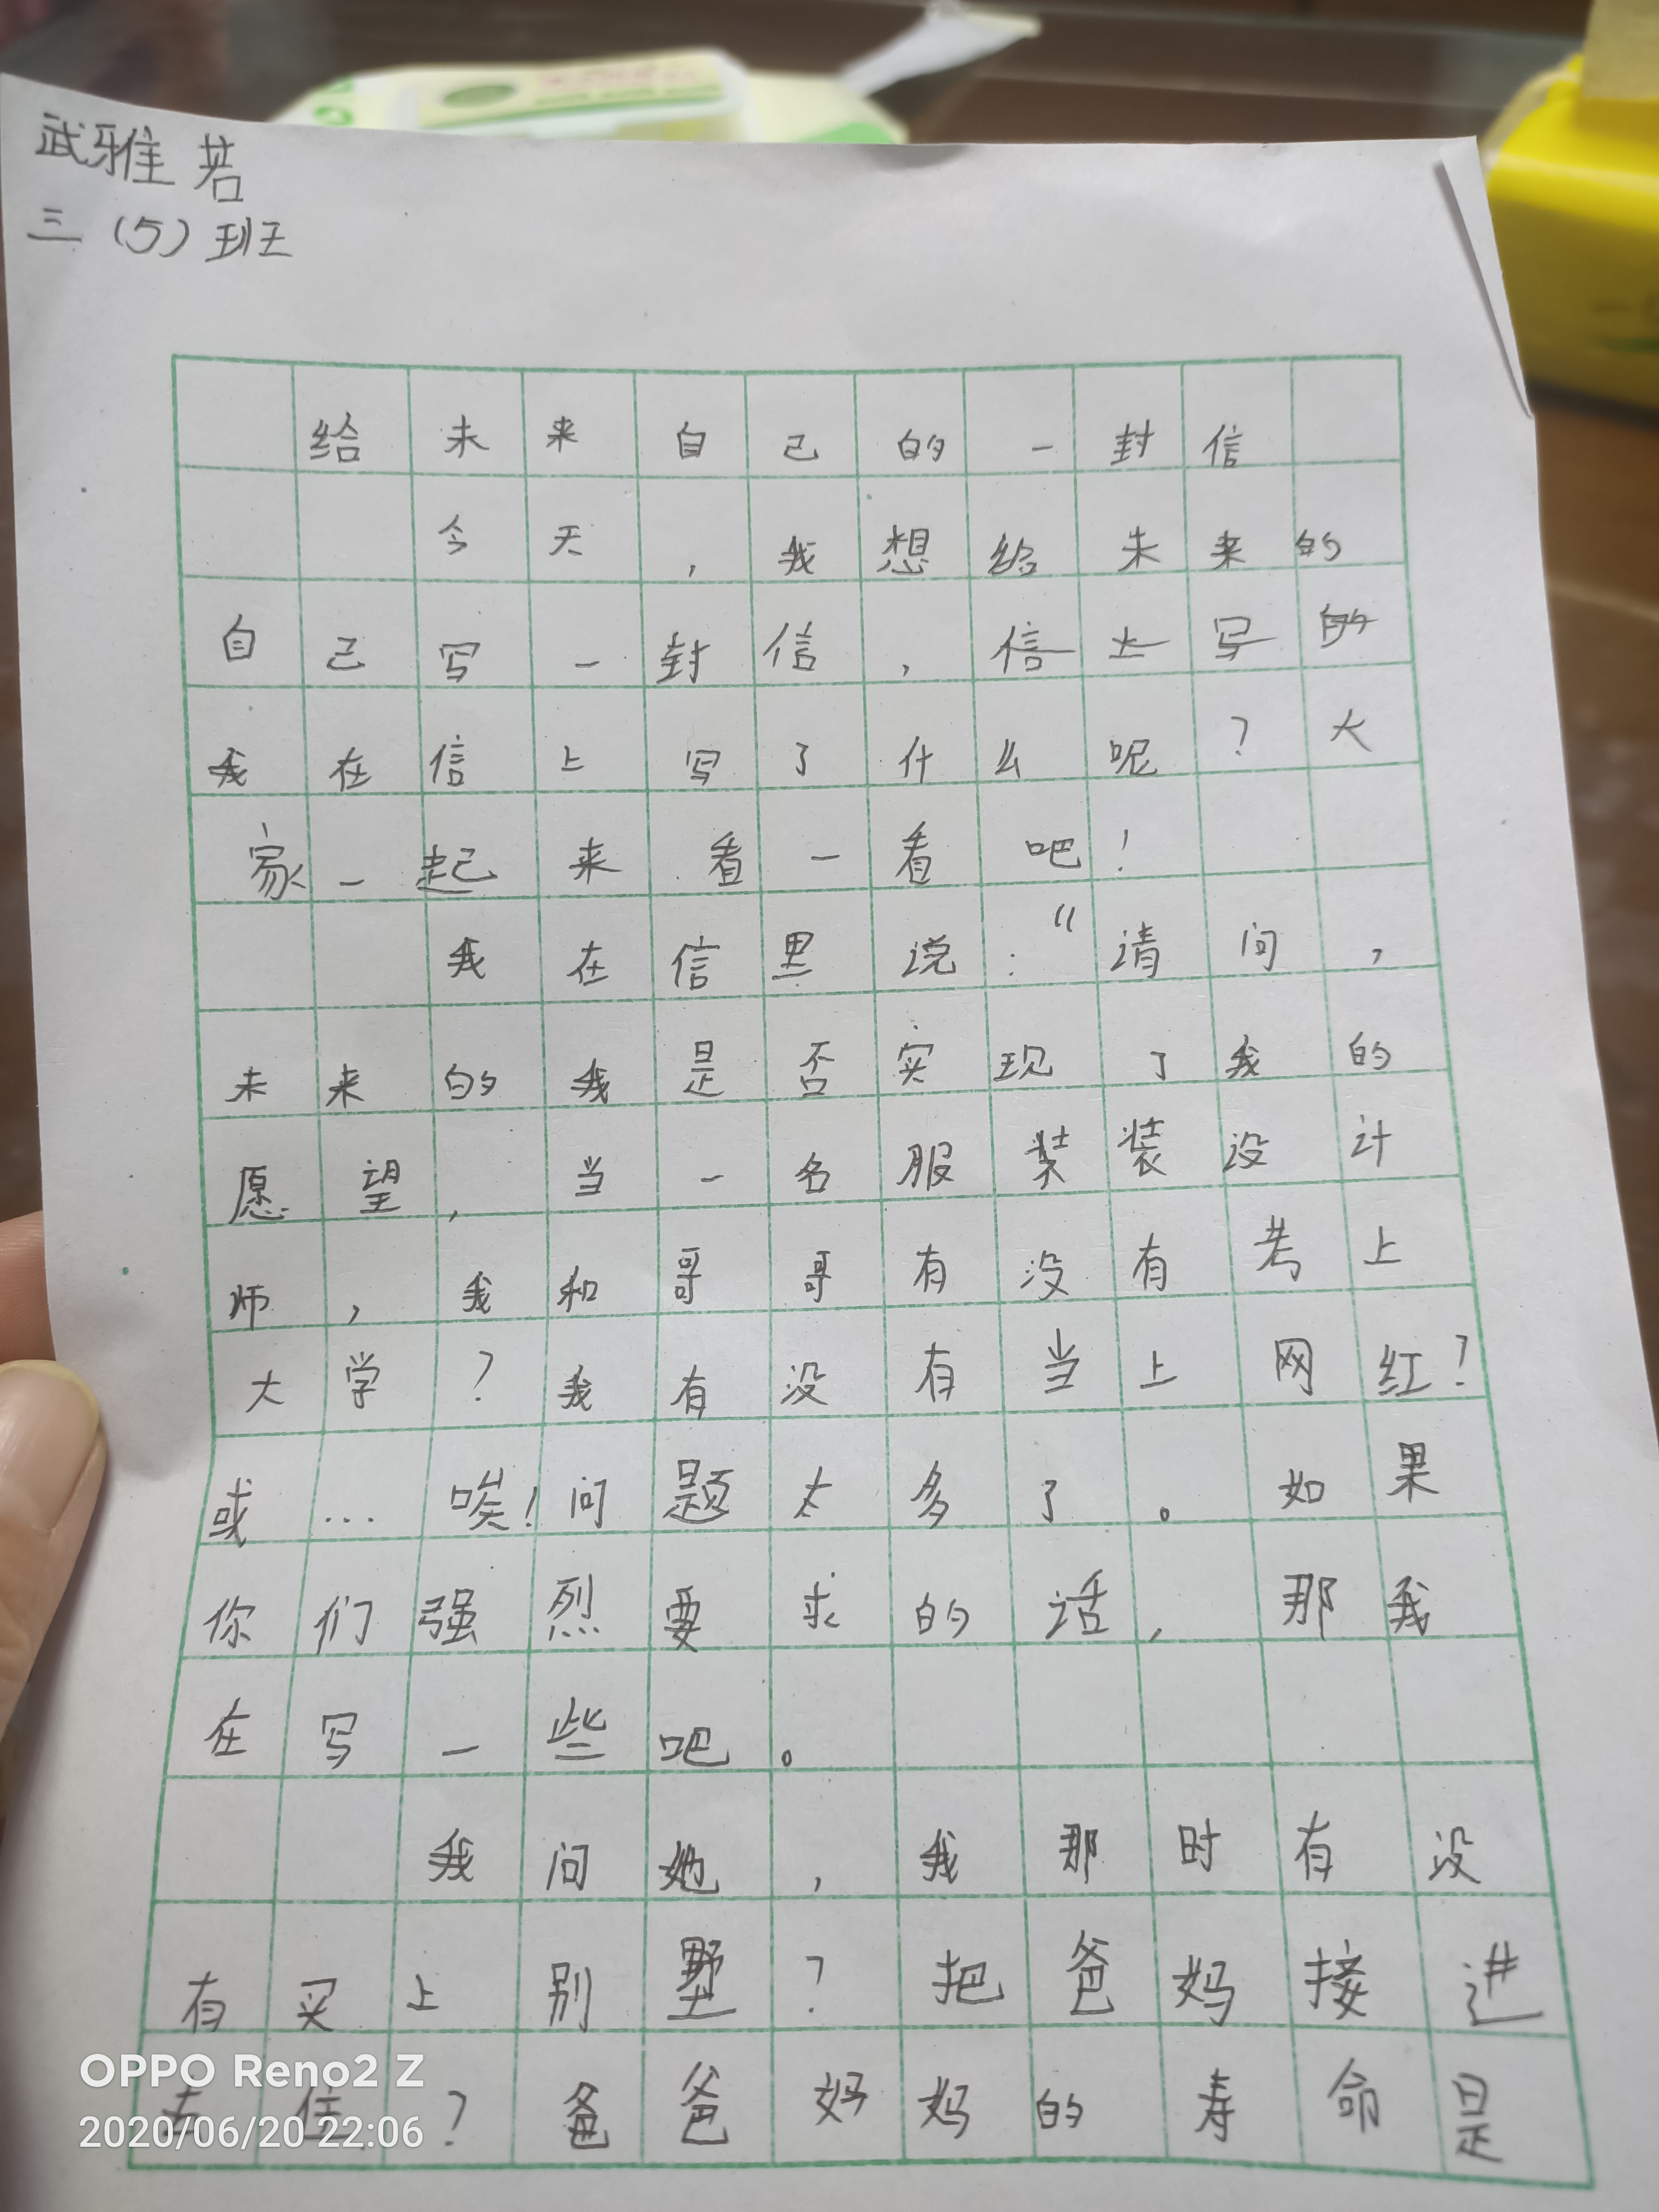 武雅若
三（5）班
给未来自己的一封信
今天，我想给未来的
自己写一封信，信上写的
我在信上写了什么呢？大
家一起来看一看吧！
我在信里说：“请问，
未来的我是否实现了我的
愿望，当一名服装装设计
师，我和哥哥有没有考上
大学？我有没有当上网红？
或…唉！问题太多了。如果
你们强烈要求的话，那我
在写一些吧。
我问她，我那时有没
有买上别墅？把爸妈接进
去住？爸爸妈妈的寿命是
OPPO Reno2 Z
2020/06/20 22:06